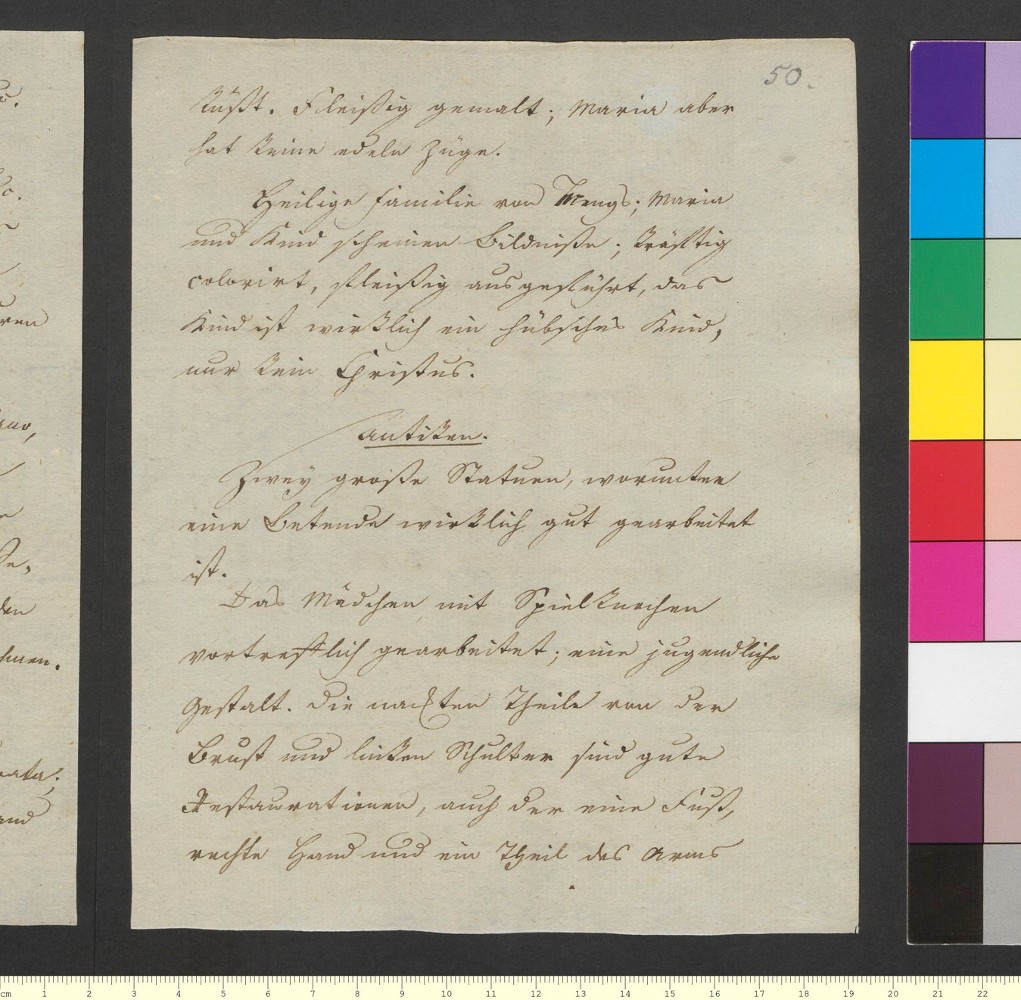 50.
küßt. Fleißig gemalt; Maria aber
hat keine edeln Züge.
Heilige Familie von Mengs; Maria
und Kind scheinen Bildniße; kräftig
colorirt, fleißig ausgeführt, das
Kind ist wirklich ein hübsches Kind,
nur kein Christus.
Antiken.
Zwey große Statuen, worunter
eine Betende wirklich gut gearbeitet
ist.
Das Mädchen mit Spielknochen
vortrefflich gearbeitet; eine jugendliche
Gestalt. Die nackten Theile von der
Brust und linken Schulter sind gute
Restaurationen, auch der eine Fuß,
rechte Hand und ein Theil des Arms
ren
den
hmen.
rata;
and
cm 1 2 3 4 5 6 7 8 9 10 11 12 13 14 15 16 17 18 19 20 21 22